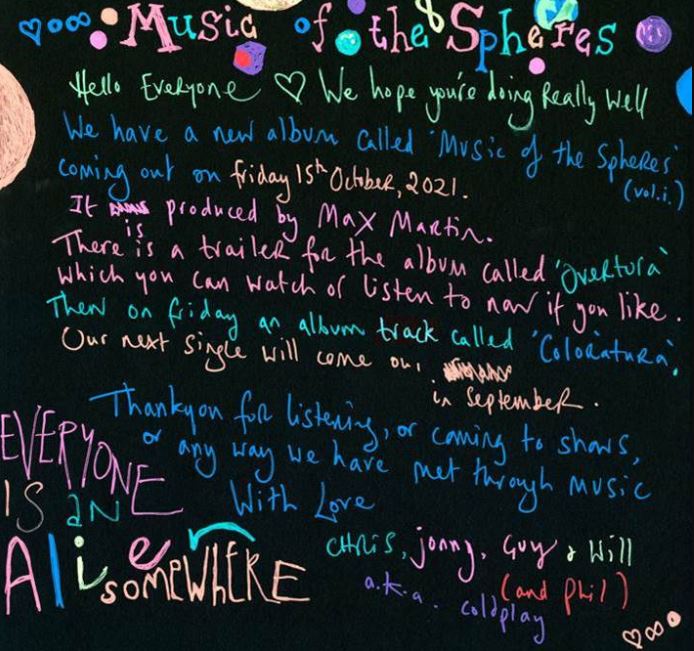 Music of the Spheres
Hello Everyone ♡ We hope you're doing Really Well
We have a new album called 'Music of the Spheres'
(vol.i.)
coming out on friday 15th October, 2021.
It is produced by Max Martin.
There is a trailer for the album called 'Overtura'
which you can watch or listen to now if you like.
Then on friday an album track called 'Coloratura'.
Our next single will come out
in September.
Thankyou for listening, or coming to shows,
or any way we have met through music
With Love
Chris, jonny, Guy & Will
(and phil)
a.k.a. coldplay
EVERYONE
IS aN
Alien
SOMEWHERE